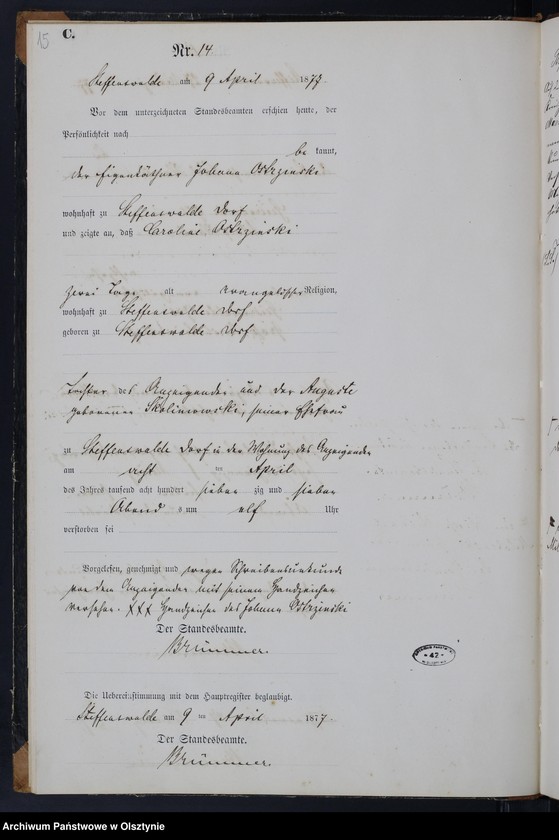 15
C.
Nr. 14
Steffenswalde am 9 April 1877
Vor dem unterzeichneten Standesbeamten erschien heute, der
Persönlichkeit nach
be kannt,
der Eigenkäthner Johann Ostrzinski
wohnhaft zu Steffenswalde Dorf
und zeigte an, daß Caroline Ostrzinski
zwei Tage alt evangelischer Religion,
wohnhaft zu Steffenswalde Dorf
geboren zu Steffenswalde Dorf
Tochter des Anzeigenden und der Auguste
geborenen Skolimowski, seiner Ehefrau
zu Steffenswalde Dorf in der Wohnung des Anzeigenden
am acht ten April
des Jahres tausend acht hundert sieben zig und sieben
Abend s um elf Uhr
verstorben sei
Vorgelesen, genehmigt und wegen Schreibensunkunde
von dem Anzeigenden mit seinem Handzeichen
versehen. XXX Handzeichen des Johann Ostrzinski
Der Standesbeamte.
Brümmer.
42
Die Uebereinstimmung mit dem Hauptregister beglaubigt.
Steffenswalde am 9 ten April 1877.
Der Standesbeamte.
Brümmer.
Archiwum Państwowe w Olsztynie